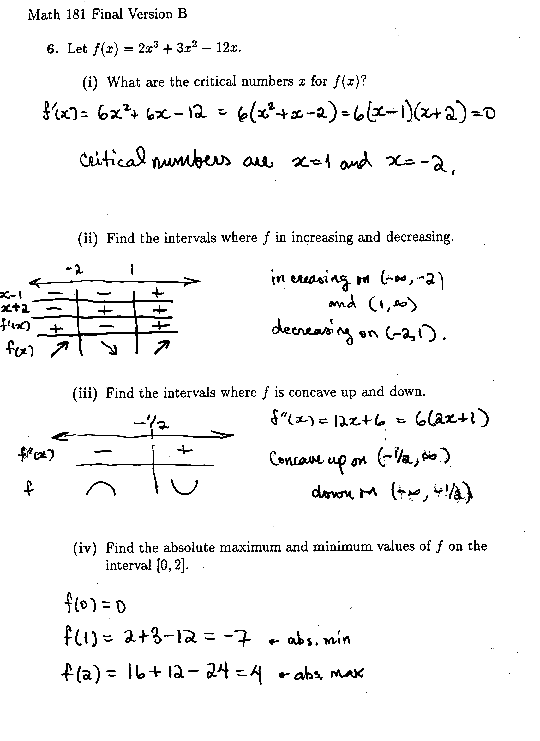 Math 181 Final Version B
6. Let f(x) = 2x³ + 3x² − 12x.
(i) What are the critical numbers x for f(x)?
f'(x) = 6x² + 6x − 12 = 6(x² + x − 2) = 6(x−1)(x+2) = 0
Critical numbers are x=1 and x=−2.
(ii) Find the intervals where f in increasing and decreasing.
−2 1
x−1 − − +
x+2 − + +
f'(x) + − +
f(x) ↗ ↘ ↗
increasing on (−∞, −2)
and (1, ∞)
decreasing on (−2, 1).
(iii) Find the intervals where f is concave up and down.
f''(x) = 12x + 6 = 6(2x+1)
−1/2
f''(x) − +
f ⌢ ⌣
Concave up on (−1/2, ∞)
down on (−∞, −1/2)
(iv) Find the absolute maximum and minimum values of f on the
interval [0, 2].
f(0) = 0
f(1) = 2+3−12 = −7 ← abs. min
f(2) = 16 + 12 − 24 = 4 ← abs. max